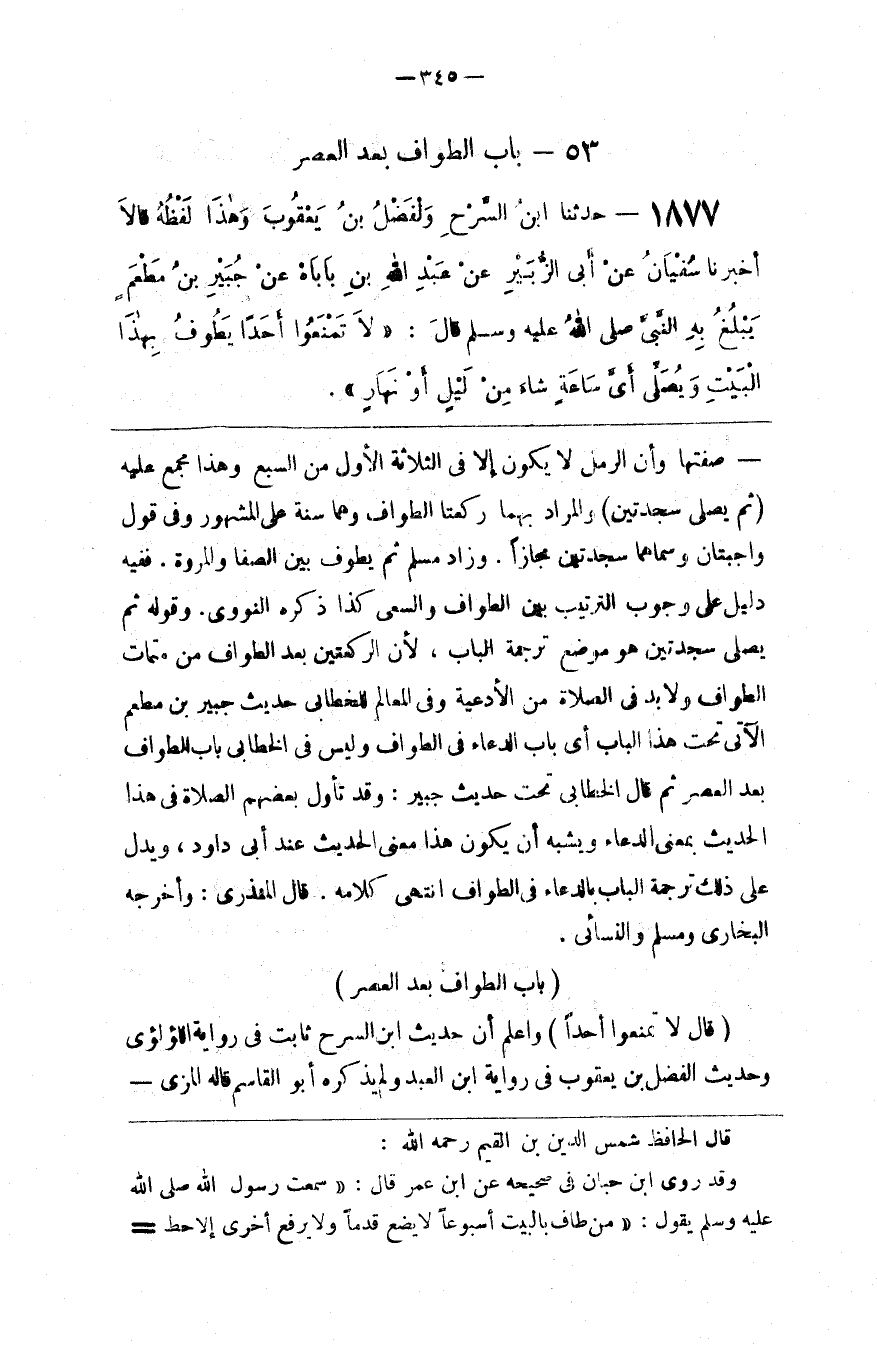 — ٣٤٥ —
٥٣ — باب الطواف بعد العصر
١٨٧٧ — حدثنا ابنُ السَّرْحِ وَلْفَضْلُ بنُ يَعْقُوبَ وَهٰذَا لَفْظُهُ قالاَ
أخبرنا سُفْيَانُ عنْ أَبى الزُّبَيْرِ عنْ عَبْدِ اللهِ بنِ بَابَاهْ عنْ جُبَيْرِ بنُ مَطْعَمٍ
يَبْلُغُ بِهِ النَّبىَّ صلى اللهُ عليه وسـلم قالَ : « لاَ تَمْنَعُوا أَحَدًا يَطُوفُ بِهٰذَا
الْبَيْتِ وَيُصَلِّى أَىَّ سَاعَةٍ شاءَ مِنْ لَيْلٍ أَوْ نَهَارٍ » .
— صفتها وأن الرمل لا يكون إلا فى الثلاثة الأول من السبع وهذا مجمع عليه
(ثم يصلى سجدتين) والمراد بهما ركعتا الطواف وهما سنة على المشهور وفى قول
واجبتان وسماهما سجدتين مجازاً . وزاد مسلم ثم يطوف بين الصفا والمروة . ففيه
دليل على وجوب الترتيب بين الطواف والسعى كذا ذكره النووى . وقوله ثم
يصلى سجدتين هو موضع ترجمة الباب ، لأن الركعتين بعد الطواف من متمات
الطواف ولا بد فى الصلاة من الأدعية وفى المعالم للخطابى حديث جبير بن مطعم
الآتى تحت هذا الباب أى باب الدعاء فى الطواف وليس فى الخطابى باب الطواف
بعد العصر ثم قال الخطابى تحت حديث جبير : وقد تأول بعضهم الصلاة فى هذا
الحديث بمعنى الدعاء ويشبه أن يكون هذا معنى الحديث عند أبى داود ، ويدل
على ذلك ترجمة الباب بالدعاء فى الطواف انتهى كلامه . قال المنذرى : وأخرجه
البخارى ومسلم والنسائى .
( باب الطواف بعد العصر )
( قال لا تمنعوا أحداً ) واعلم أن حديث ابن السرح ثابت فى رواية اللؤلؤى
وحديث الفضل بن يعقوب فى رواية ابن العبد ولم يذكره أبو القاسم قاله المزى —
قال الحافظ شمس الدين بن القيم رحمه الله :
وقد روى ابن حبان فى صحيحه عن ابن عمر قال : « سمعت رسول الله صلى الله
عليه وسلم يقول : « من طاف بالبيت أسبوعاً لا يضع قدماً ولا يرفع أخرى إلا حط =